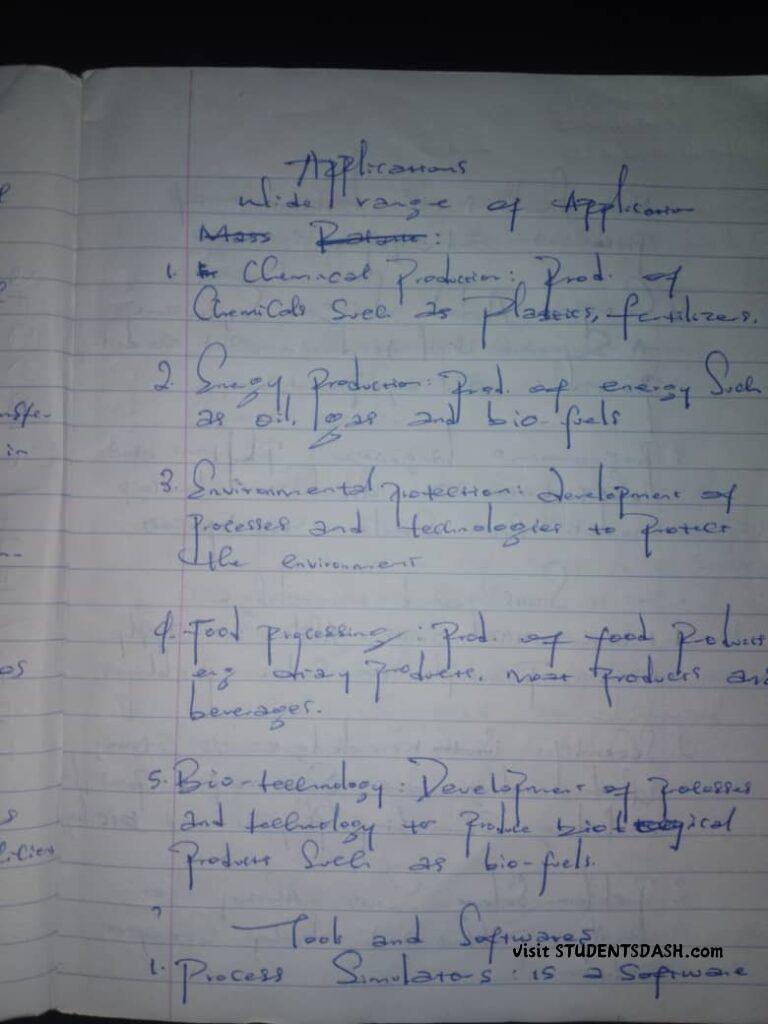 Applications
Wide range of Application
Mass Balance:
1. Chemical Production: Prod. of
Chemicals Such as Plastics, fertilizers.
2. Energy Production: Prod. of energy Such
as oil, gas and bio-fuels
3. Environmental protection: development of
Processes and technologies to Protect
the environment
4. Food processing: Prod. of food Products
e.g diary products, meat products and
beverages.
5. Bio-technology: Development of processes
and technology to Produce biological
Products Such as bio-fuels.
?
Tools and Softwares
visit STUDENTSDASH.com
1. Process Simulators: is a Software
nsfe-
in